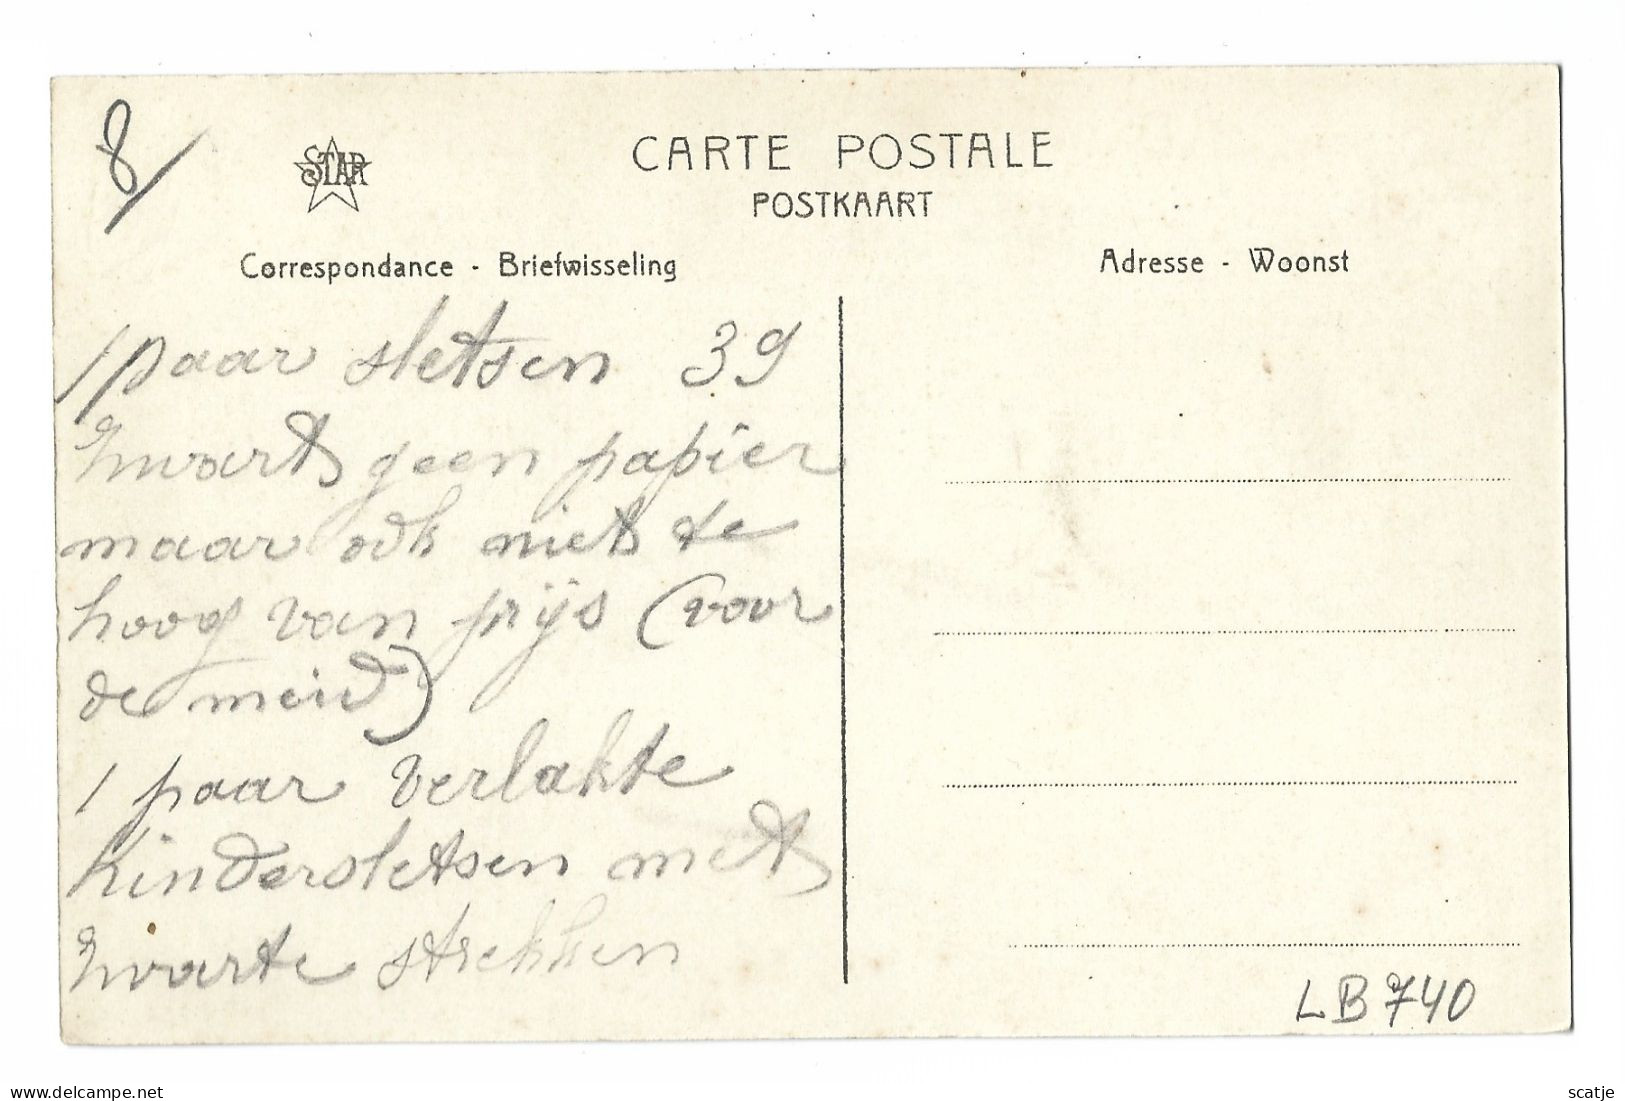 8/
STAR
CARTE POSTALE
POSTKAART
Correspondance - Briefwisseling
Adresse - Woonst
1 paar sletsen 39
zwart geen papier
maar ook niet te
hoog van prijs (voor
de meid)
1 paar verlakte
kindersletsen met
zwarte strekken
LB740
scatje